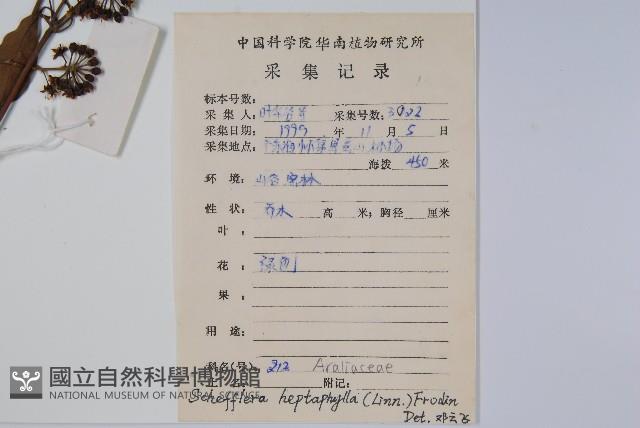 中国科学院华南植物研究所
采集记录
标本号数:
采集人: 叶华谷 采集号数: 3002
采集日期: 1999 年 11 月 5 日
采集地点: 林场
海拔 450 米
环境: 山谷密林
性状: 乔木 高 米; 胸径 厘米
叶:
花: 绿色
果:
用途:
科名(号) 212 Araliaceae
附记:
Schefflera heptaphylla (Linn.) Frodin
Det. 邓云飞
國立自然科學博物館
NATIONAL MUSEUM OF NATURAL SCIENCE